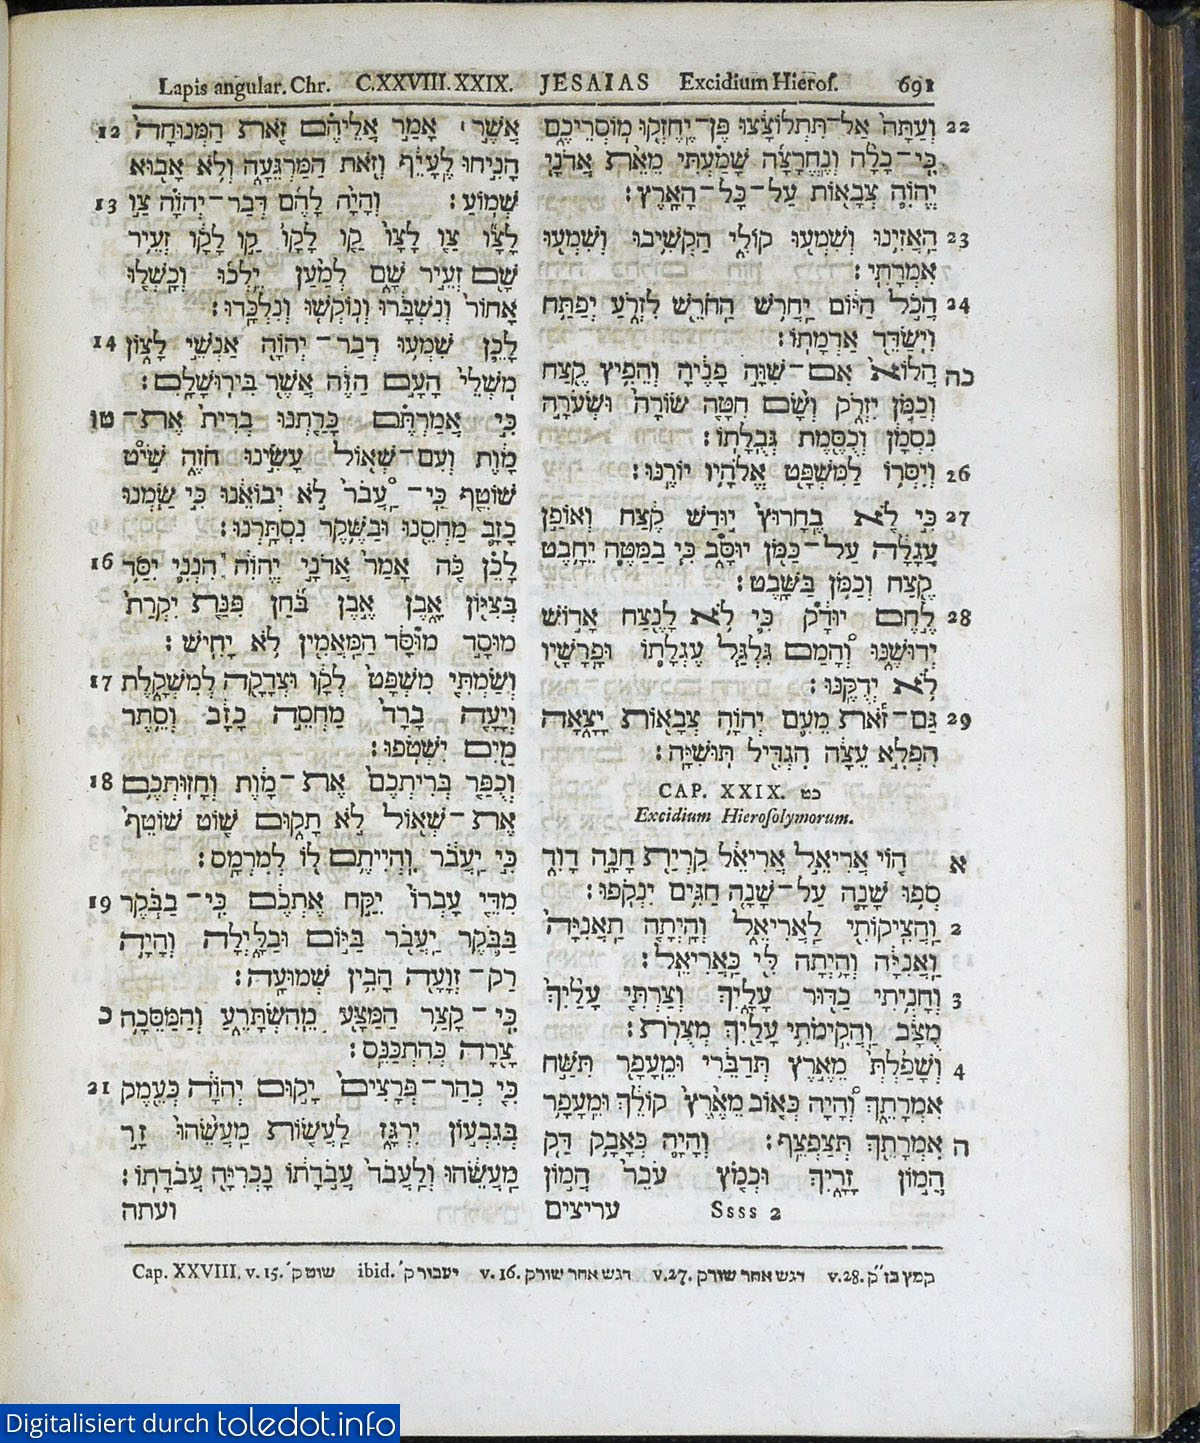 Lapis angular. Chr. C.XXVIII.XXIX. JESAIAS Excidium Hierof. 691
12 אֲשֶׁר ׀ אָמַר אֲלֵיהֶם זֹאת הַמְּנוּחָה
הָנִיחוּ לֶעָיֵף וְזֹאת הַמַּרְגֵּעָה וְלֹא אָבוּא
13 שְׁמוֹעַ׃ וְהָיָה לָהֶם דְּבַר־יְהֹוָה צַו
לָצָו צַו לָצָו קַו לָקָו קַו לָקָו זְעֵיר
שָׁם זְעֵיר שָׁם לְמַעַן יֵלְכוּ וְכָשְׁלוּ
אָחוֹר וְנִשְׁבָּרוּ וְנוֹקְשׁוּ וְנִלְכָּדוּ׃
14 לָכֵן שִׁמְעוּ דְבַר־יְהֹוָה אַנְשֵׁי לָצוֹן
מֹשְׁלֵי הָעָם הַזֶּה אֲשֶׁר בִּירוּשָׁלִָם׃
טו כִּי אֲמַרְתֶּם כָּרַתְנוּ בְרִית אֶת־
מָוֶת וְעִם־שְׁאוֹל עָשִׂינוּ חֹזֶה שִׁיט
שׁוֹטֵף כִּי־עָבַר לֹא יְבוֹאֵנוּ כִּי שַׂמְנוּ
כָזָב מַחְסֵנוּ וּבַשֶּׁקֶר נִסְתָּרְנוּ׃
16 לָכֵן כֹּה אָמַר אֲדֹנָי יֱהֹוִה הִנְנִי יִסַּד
בְּצִיּוֹן אָבֶן אֶבֶן בֹּחַן פִּנַּת יִקְרַת
מוּסָד מוּסָּד הַמַּאֲמִין לֹא יָחִישׁ׃
17 וְשַׂמְתִּי מִשְׁפָּט לְקָו וּצְדָקָה לְמִשְׁקָלֶת
וְיָעָה בָרָד מַחְסֵה כָזָב וְסֵתֶר
מַיִם יִשְׁטֹפוּ׃
18 וְכֻפַּר בְּרִיתְכֶם אֶת־מָוֶת וְחָזוּתְכֶם
אֶת־שְׁאוֹל לֹא תָקוּם שׁוֹט שׁוֹטֵף
כִּי יַעֲבֹר וִהְיִיתֶם לוֹ לְמִרְמָס׃
19 מִדֵּי עָבְרוֹ יִקַּח אֶתְכֶם כִּי־בַבֹּקֶר
בַּבֹּקֶר יַעֲבֹר בַּיּוֹם וּבַלָּיְלָה וְהָיָה
רַק־זְוָעָה הָבִין שְׁמוּעָה׃
כ כִּי־קָצַר הַמַּצָּע מֵהִשְׂתָּרֵעַ וְהַמַּסֵּכָה
צָרָה כְּהִתְכַּנֵּס׃
21 כִּי כְהַר־פְּרָצִים יָקוּם יְהֹוָה כְּעֵמֶק
בְּגִבְעוֹן יִרְגָּז לַעֲשׂוֹת מַעֲשֵׂהוּ זָר
מַעֲשֵׂהוּ וְלַעֲבֹד עֲבֹדָתוֹ נָכְרִיָּה עֲבֹדָתוֹ׃
ועתה
22 וְעַתָּה אַל־תִּתְלוֹצָצוּ פֶּן־יֶחְזְקוּ מוֹסְרֵיכֶם
כִּי־כָלָה וְנֶחֱרָצָה שָׁמַעְתִּי מֵאֵת אֲדֹנָי
יֱהֹוִה צְבָאוֹת עַל־כָּל־הָאָרֶץ׃
23 הַאֲזִינוּ וְשִׁמְעוּ קוֹלִי הַקְשִׁיבוּ וְשִׁמְעוּ
אִמְרָתִי׃
24 הֲכֹל הַיּוֹם יַחֲרֹשׁ הַחֹרֵשׁ לִזְרֹעַ יְפַתַּח
וִישַׂדֵּד אַדְמָתוֹ׃
כה הֲלוֹא אִם־שִׁוָּה פָנֶיהָ וְהֵפִיץ קֶצַח
וְכַמֹּן יִזְרֹק וְשָׂם חִטָּה שׂוֹרָה וּשְׂעֹרָה
נִסְמָן וְכֻסֶּמֶת גְּבֻלָתוֹ׃
26 וְיִסְּרוֹ לַמִּשְׁפָּט אֱלֹהָיו יוֹרֶנּוּ׃
27 כִּי לֹא בֶחָרוּץ יוּדַשׁ קֶצַח וְאוֹפַן
עֲגָלָה עַל־כַּמֹּן יוּסָּב כִּי בַמַּטֶּה יֵחָבֶט
קֶצַח וְכַמֹּן בַּשָּׁבֶט׃
28 לֶחֶם יוּדָק כִּי לֹא לָנֶצַח אָדוֹשׁ
יְדוּשֶׁנּוּ וְהָמַם גִּלְגַּל עֶגְלָתוֹ וּפָרָשָׁיו
לֹא יְדֻקֶּנּוּ׃
29 גַּם־זֹאת מֵעִם יְהֹוָה צְבָאוֹת יָצָאָה
הִפְלִא עֵצָה הִגְדִּיל תּוּשִׁיָּה׃
CAP. XXIX. כט
Excidium Hierosolymorum.
א הוֹי אֲרִיאֵל אֲרִיאֵל קִרְיַת חָנָה דָוִד
סְפוּ שָׁנָה עַל־שָׁנָה חַגִּים יִנְקֹפוּ׃
2 וַהֲצִיקוֹתִי לַאֲרִיאֵל וְהָיְתָה תַאֲנִיָּה
וַאֲנִיָּה וְהָיְתָה לִּי כַּאֲרִיאֵל׃
3 וְחָנִיתִי כַדּוּר עָלָיִךְ וְצַרְתִּי עָלַיִךְ
מֻצָּב וַהֲקִימֹתִי עָלַיִךְ מְצֻרֹת׃
4 וְשָׁפַלְתְּ מֵאֶרֶץ תְּדַבֵּרִי וּמֵעָפָר תִּשַּׁח
אִמְרָתֵךְ וְהָיָה כְּאוֹב מֵאֶרֶץ קוֹלֵךְ וּמֵעָפָר
ה אִמְרָתֵךְ תְּצַפְצֵף׃ וְהָיָה כְּאָבָק דַּק
הֲמוֹן זָרָיִךְ וּכְמֹץ עֹבֵר הֲמוֹן
עריצים Ssss 2
Cap. XXVIII. v. 15. שוט ק׳ ibid. יעבור ק׳ v. 16. דגש אחר שורק v. 27. דגש אחר שורק v. 28. קמץ בז״ק
Digitalisiert durch toledot.info